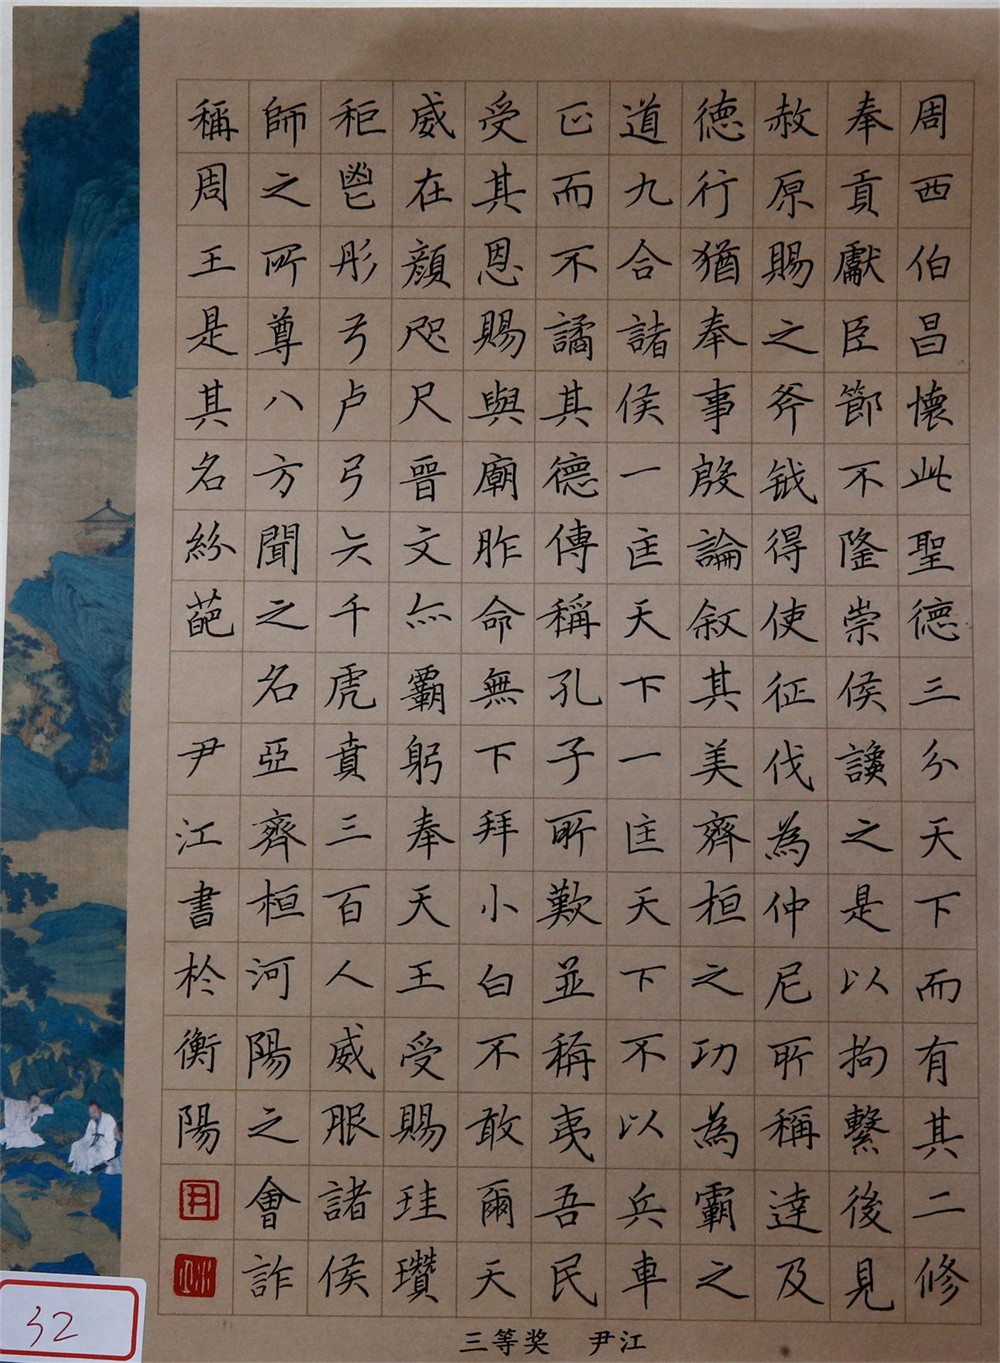 周西伯昌懷此聖德三分天下而有其二修
奉貢獻臣節不隆崇侯讒之是以拘繫後見
赦原賜之斧鉞得使征伐為仲尼所稱達及
德行猶奉事殷論敘其美齊桓之功為霸之
道九合諸侯一匡天下一匡天下不以兵車
正而不譎其德傳稱孔子所歎並稱夷吾民
受其恩賜與廟胙命無下拜小白不敢爾天
威在顏咫尺晉文亦霸躬奉天王受賜珪瓚
秬鬯彤弓卢弓矢千虎賁三百人威服諸侯
師之所尊八方聞之名亞齊桓河陽之會詐
稱周王是其名紛葩 尹江書於衡陽
三等奖 尹江
32